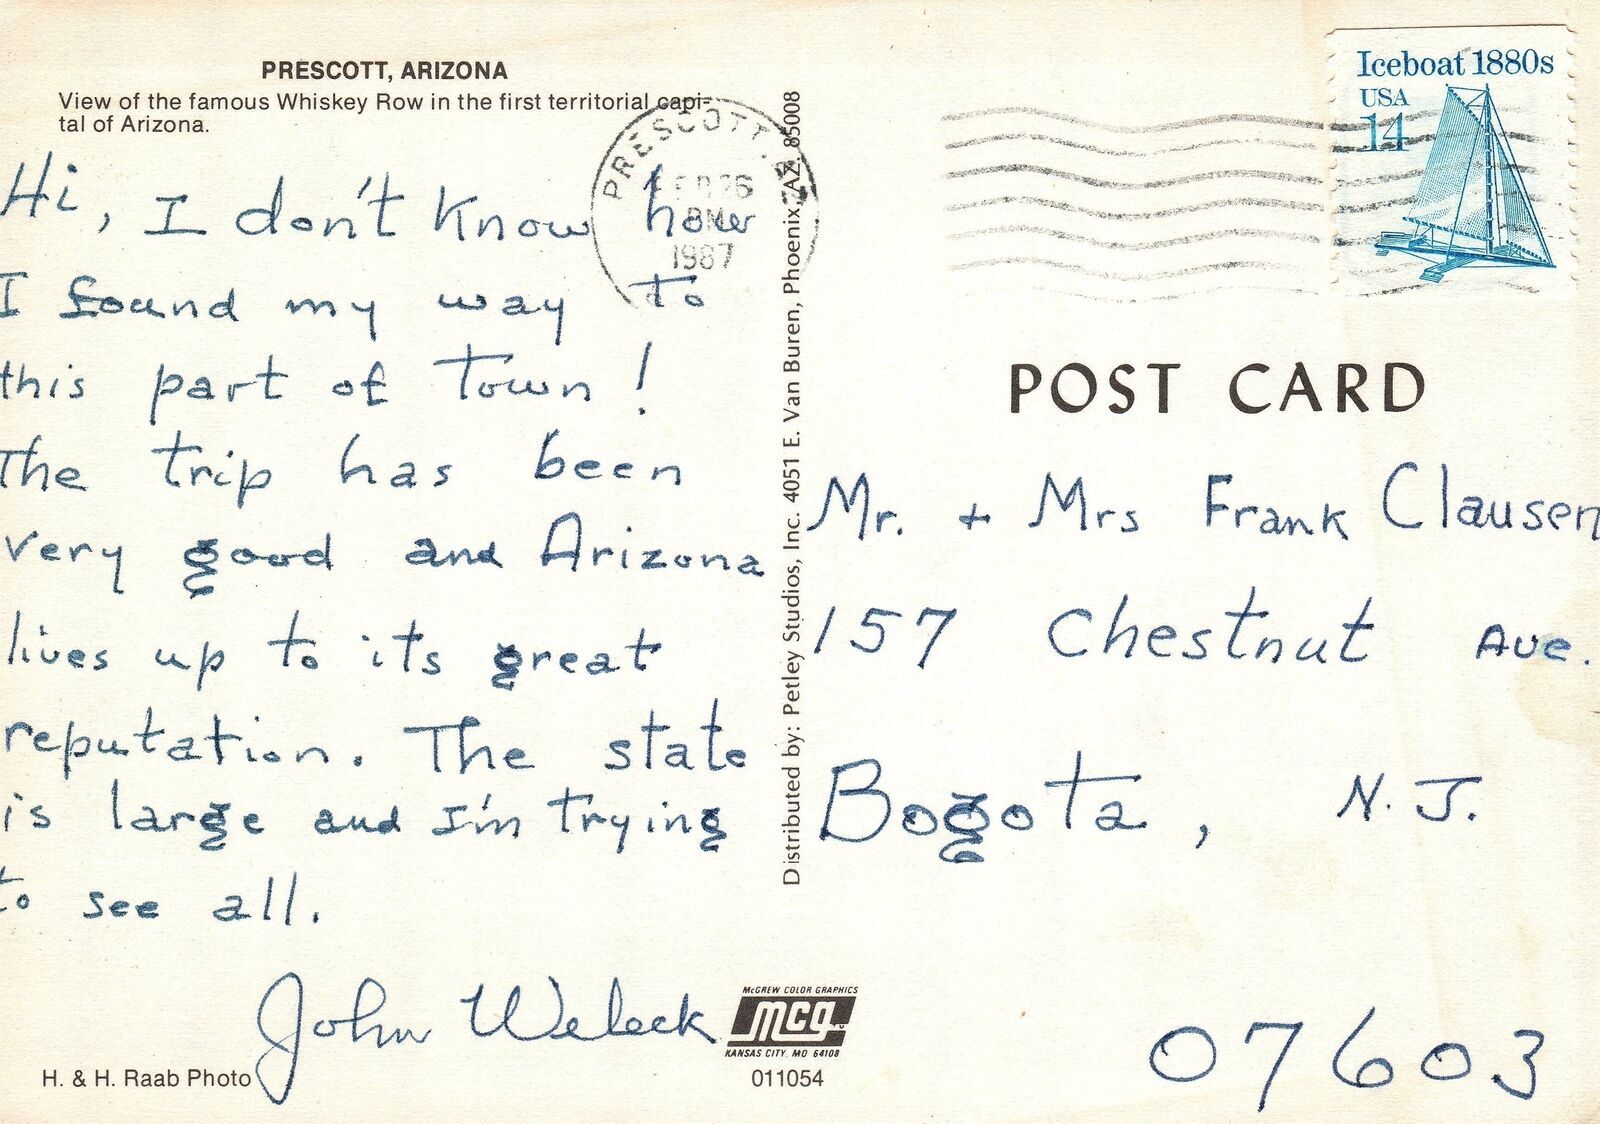 PRESCOTT, ARIZONA
View of the famous Whiskey Row in the first territorial capi-
tal of Arizona.
Hi, I don't know how
I found my way to
this part of town!
The trip has been
very good and Arizona
lives up to its great
reputation. The state
is large and I'm trying
to see all.
John
H. & H. Raab Photo
PRESCOTT, AZ
FEB 26
PM
1987
Distributed by: Petley Studios, Inc. 4051 E. Van Buren, Phoenix, AZ. 85008
McGREW COLOR GRAPHICS
mcg
KANSAS CITY, MO 64108
011054
Iceboat 1880s
USA
14
POST CARD
Mr. + Mrs Frank Clausen
157 Chestnut Ave.
Bogota, N.J.
07603